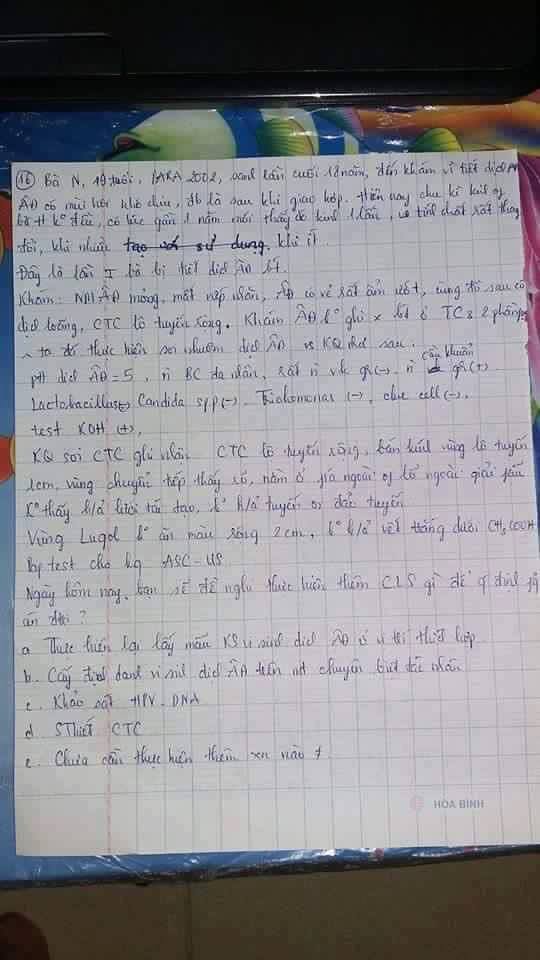 16 Bà N, 49 tuổi, PARA 2002, sanh lần cuối 18 năm, đến khám vì tiết dịch
ÂĐ có mùi hôi khó chịu, đb là sau khi giao hợp. Hiện nay chu kì kinh of
bà ... k° đều, có lúc gần 1 năm mới thấy có kinh 1 lần, ... tính chất rất thay
đổi, khi nhiều khi ít.
Đây là lần I bà bị tiết dịch ÂĐ bt.
Khám: NM ÂĐ mỏng, mất nếp nhăn, ÂĐ có vẻ rất ẩm ướt, cùng đồ sau có
dịch loãng, CTC lộ tuyến rộng. Khám ÂĐ k° ghi x bt ở TC & 2 phần phụ
ta đã thực hiện soi nhuộm dịch ÂĐ vs KQ như sau:
pH dịch ÂĐ = 5, n BC đa nhân, rất n vk gr(-), n cầu khuẩn gr(+)
Lactobacillus(-) Candida spp(-), Trichomonas (-), clue cell(-),
test KOH (+),
KQ soi CTC ghi nhận CTC lộ tuyến rộng, bán kính vùng lộ tuyến
1cm, vùng chuyển tiếp thấy rõ, nằm ở phía ngoài of lỗ ngoài giải phẫu
k° thấy h/ả biểu mô tái tạo, k° h/ả tuyến or đảo tuyến
Vùng Lugol k° ăn màu rộng 2cm, k° h/ả vết trắng dưới CH3COOH
Pap test cho kq ASC-US
Ngày hôm nay, bạn sẽ đề nghị thực hiện thêm CLS gì để q định
án đtrị?
a. Thực hiện lại lấy mẫu KS vi sinh dịch ÂĐ ở vị trí thích hợp
b. Cấy định danh vi sinh dịch ÂĐ trên mt chuyên biệt
c. Khảo sát HPV-DNA
d. SThiết CTC
e. Chưa cần thực hiện thêm xn nào #
HÒA BÌNH